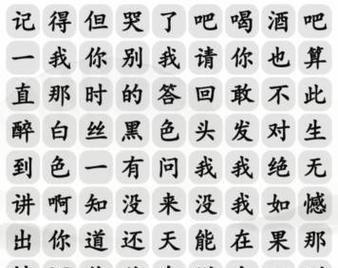 记得但哭了吧喝酒吧
一我你别我请你也算
直那时的答回敢不此
醉白丝黑色头发对生
到色一有问我我绝无
讲啊知没来没我如憾
出你道还天能在果那